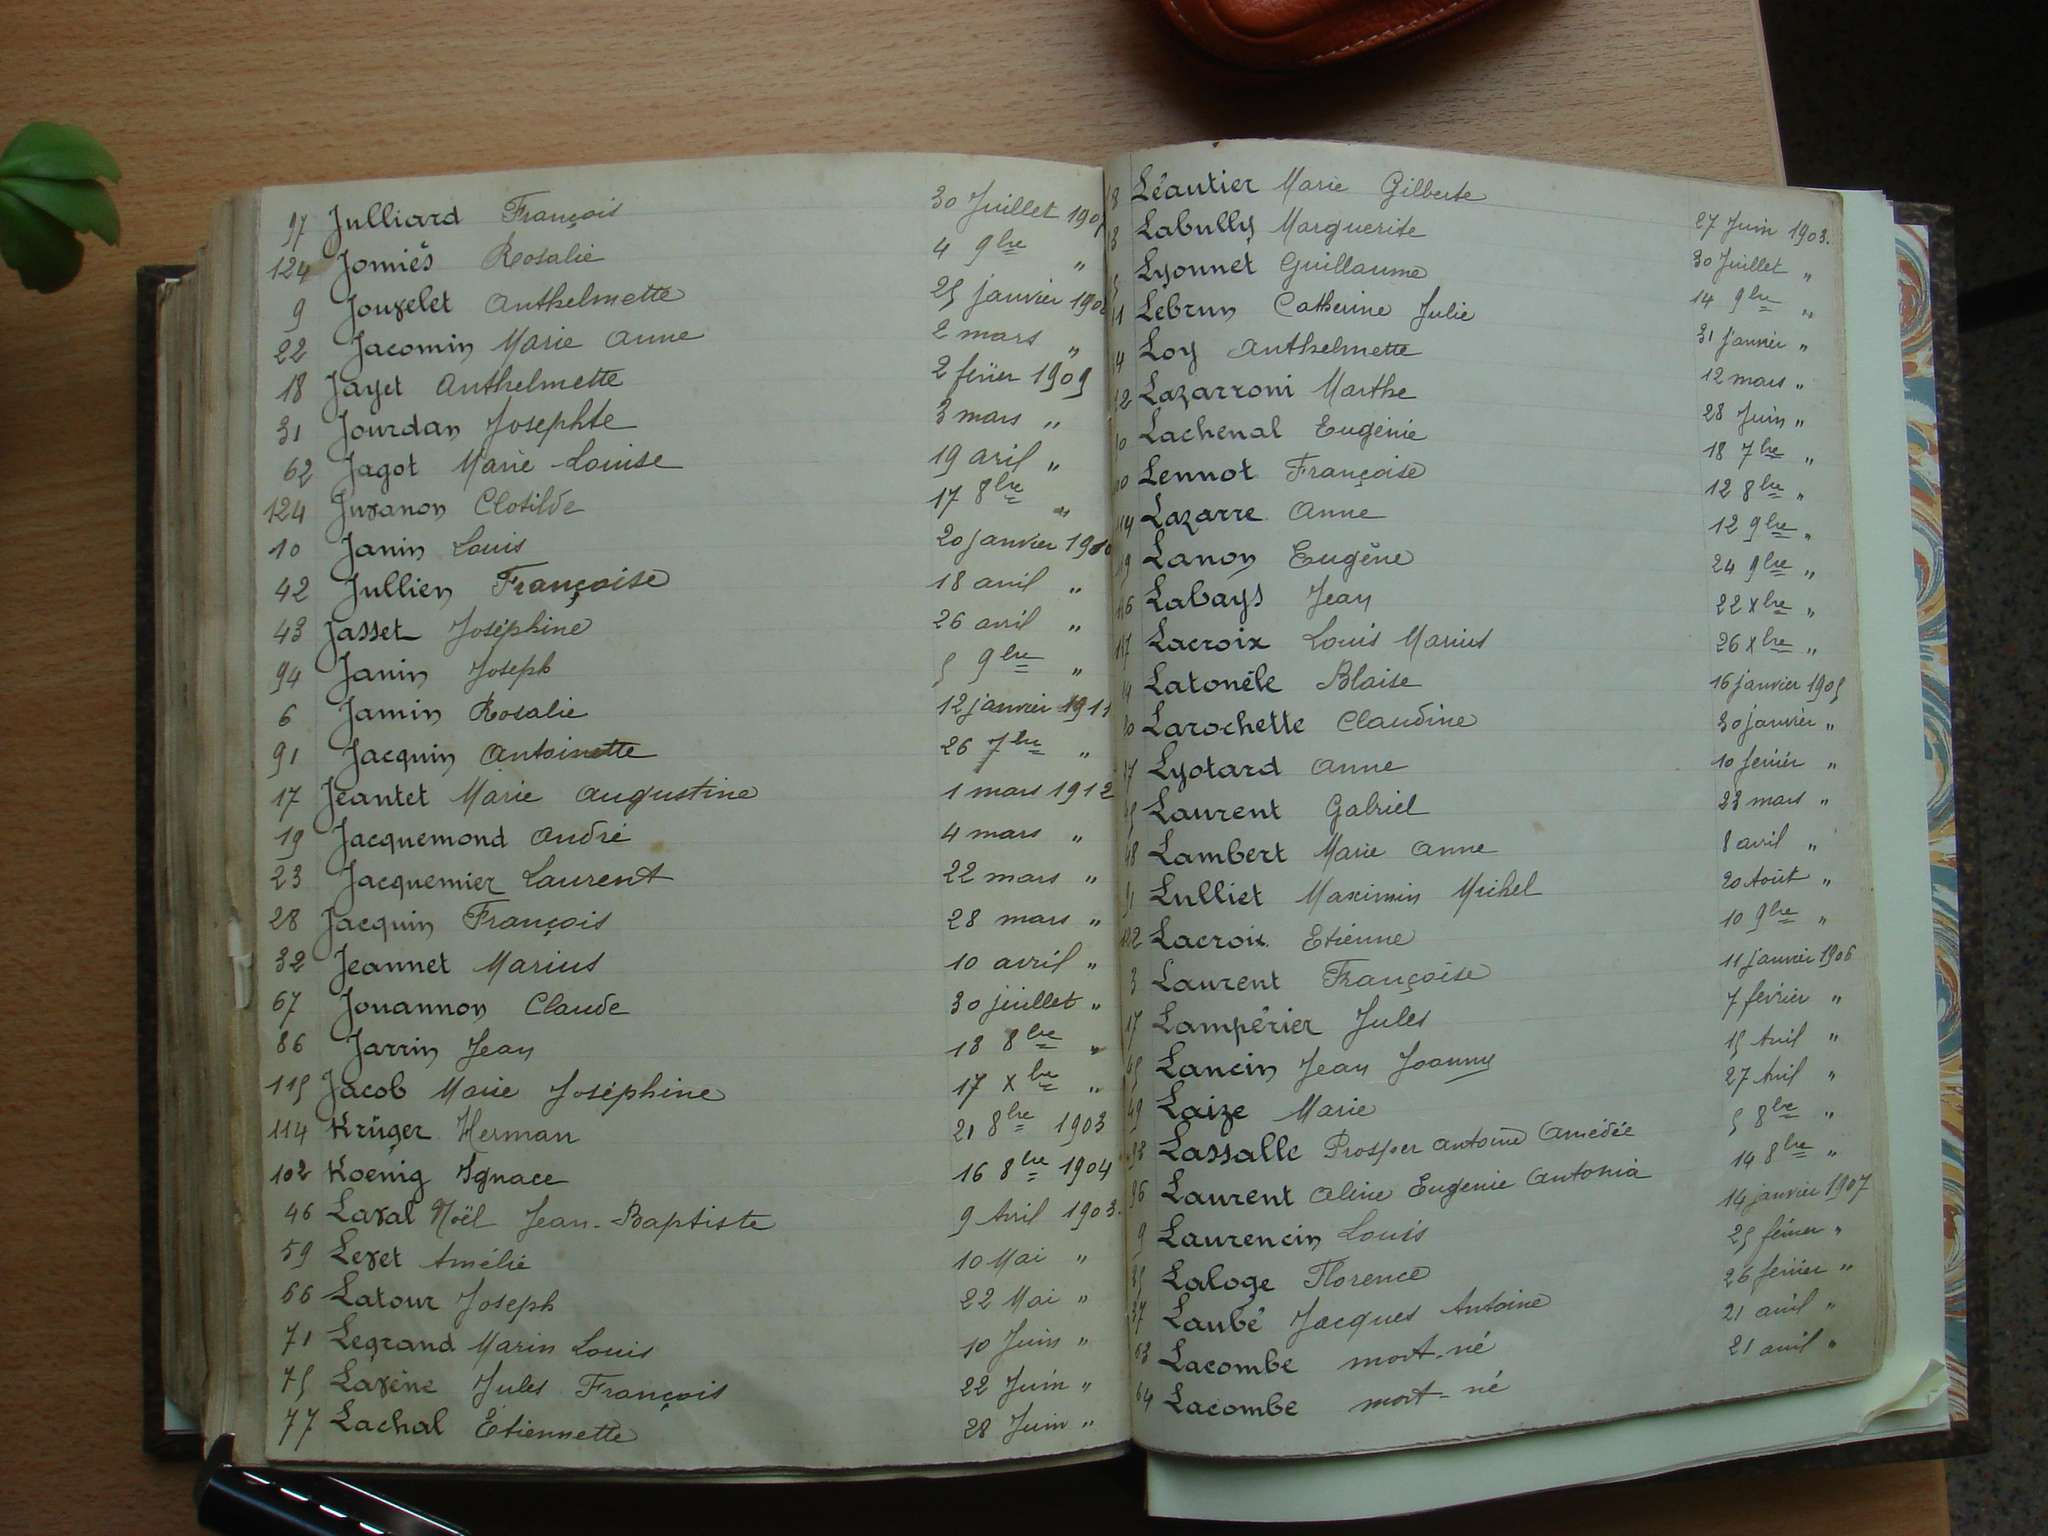 97 Julliard François 30 Juillet 190
124 Jomiés Rosalie 4 9bre "
9 Jouvelet Anthelmette 25 janvier 190
22 Jacomin Marie Anne 2 mars "
18 Jayet Anthelmette 2 février 1909
31 Jourdan Josephte 3 mars "
62 Jagot Marie-Louise 19 avril "
124 Juvanon Clotilde 17 8bre "
10 Janin Louis 20 janvier 1910
42 Jullien Françoise 18 avril "
43 Jasset Joséphine 26 avril "
94 Janin Joseph 5 9bre "
6 Jamin Rosalie 12 janvier 1911
91 Jacquin Antoinette 26 7bre "
17 Jeantet Marie Augustine 1 mars 1912
19 Jacquemond André 4 mars "
23 Jacquemier Laurent 22 mars "
28 Jacquin François 28 mars "
32 Jeannet Marius 10 avril "
67 Jouannon Claude 30 juillet "
86 Jarrin Jean 18 8bre "
115 Jacob Marie Joséphine 17 Xbre "
114 Krüger Herman 21 8bre 1903
102 Koenig Ignace 16 8bre 1904
46 Laval Noël Jean-Baptiste 9 Avril 1903.
59 Levet Amélie 10 Mai "
66 Latour Joseph 22 Mai "
71 Legrand Marin Louis 10 Juin "
75 Lavène Jules François 22 Juin "
77 Lachal Etiennette 28 Juin "
8 Léautier Marie Gilberte 27 Juin 1903.
3 Labully Marguerite 30 Juillet "
5 Lyonnet Guillaume 14 9bre "
11 Lebrun Catherine Julie 31 janvier "
14 Loy Anthelmette 12 mars "
2 Lazarroni Marthe 28 Juin "
0 Lachenal Eugénie 18 7bre "
0 Lennot Françoise 12 8bre "
114 Lazarre Anne 12 9bre "
9 Lanon Eugène 24 9bre "
6 Labays Jean 22 Xbre "
7 Lacroix Louis Marius 26 Xbre "
4 Latonéle Blaise 16 janvier 1905
0 Larochette Claudine 30 janvier "
7 Lyotard Anne 10 février "
5 Laurent Gabriel 23 mars "
48 Lambert Marie Anne 8 avril "
91 Lulliet Maximin Michel 20 Août "
122 Lacroix Etienne 10 9bre "
3 Laurent Françoise 11 janvier 1906
17 Lampérier Jules 7 février "
45 Lancin Jean Joanny 15 Avril "
49 Laize Marie 27 Avril "
93 Lassalle Prosper Antoine Amédée 5 8bre "
96 Laurent Aline Eugénie Antonia 14 8bre "
9 Laurencin Louis 14 janvier 1907
35 Laloge Florence 25 février "
37 Laubé Jacques Antoine 26 février "
63 Lacombe mort-né 21 avril "
64 Lacombe mort-né 21 avril "